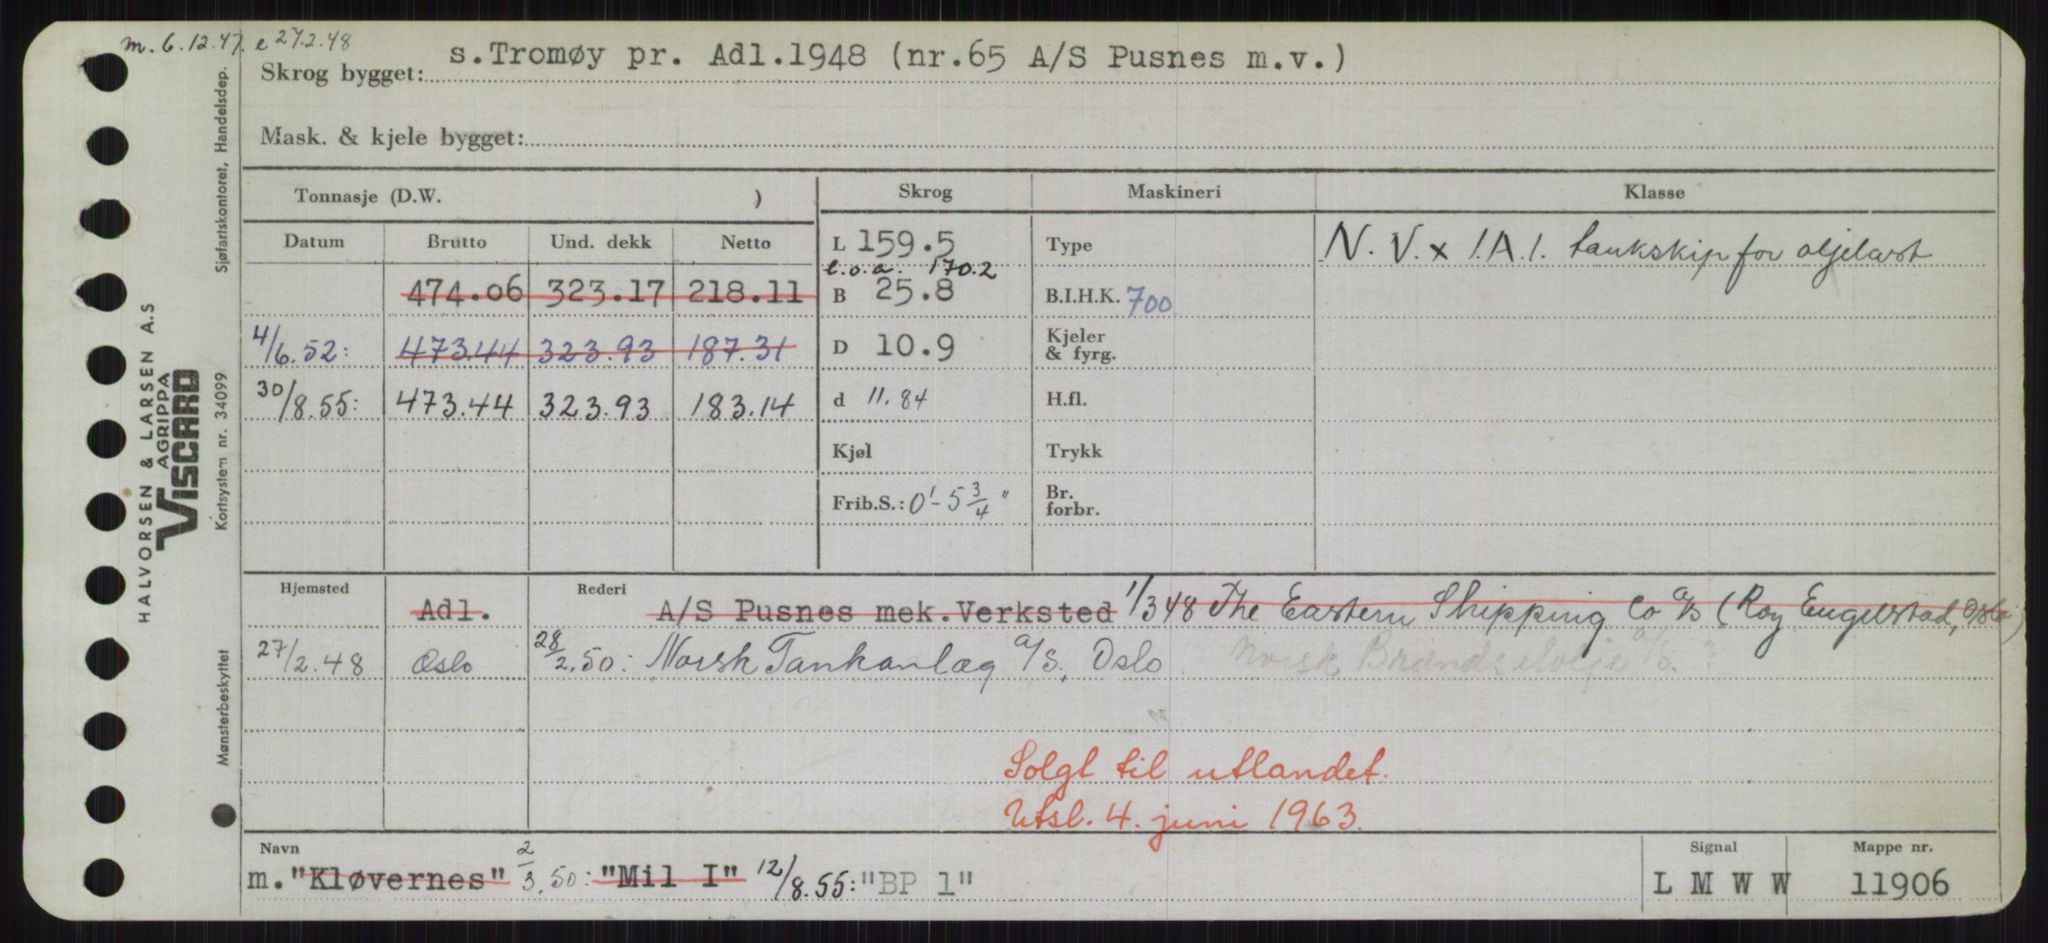 m. 6.12.47. e 27.2.48
Skrog bygget: s.Tromøy pr. Adl.1948 (nr.65 A/S Pusnes m.v.)
Mask. & kjele bygget:
Tonnasje (D.W. ) Skrog Maskineri Klasse
Datum Brutto Und. dekk Netto L 159.5 Type N.V. x 1.A.1. tankskip for oljelast
l.o.a. 170.2
474.06 323.17 218.11 B 25.8 B.I.H.K. 700
4/6.52: 473.44 323.93 187.31 D 10.9 Kjeler & fyrg.
30/8.55: 473.44 323.93 183.14 d 11.84 H.fl.
Kjøl Trykk
Frib.S.: 0'-5 3/4" Br. forbr.
Hjemsted Rederi
Adl. A/S Pusnes mek.Verksted 1/348 The Eastern Shipping Co a/s (Roy Engelstad, Oslo)
27/2.48 Oslo 28/2.50: Norsk Tankanlæg a/s, Oslo Norsk Brændselolje a/s. ?
Solgt til utlandet.
Utsl. 4. juni 1963.
Navn Signal Mappe nr.
m. "Kløvernes" 2/3.50: "Mil I" 12/8.55: "BP 1" L M W W 11906
HALVORSEN & LARSEN A.S
AGRIPPA
VISCARD
Mønsterbeskyttet Kortsystem nr. 34099 Sjøfartskontoret, Handelsdep.